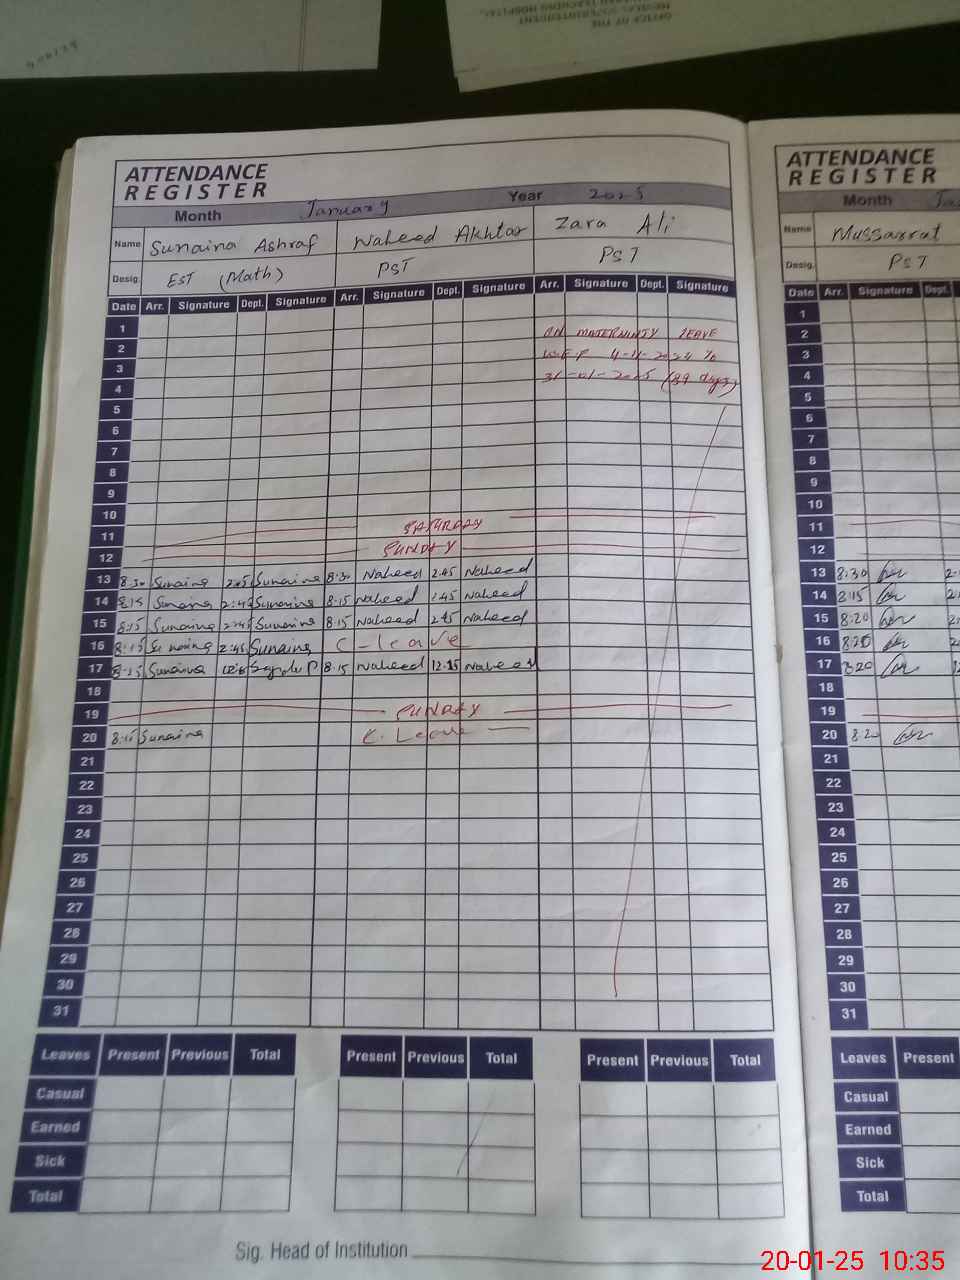 OFFICE OF THE
MEDICAL SUPERINTENDENT
TEACHING HOSPITAL
ATTENDANCE
REGISTER
Month January Year 2025
Name Sunaina Ashraf Naheed Akhtar Zara Ali
Desig. EST (Math) PST PST
Date Arr. Signature Dept. Signature Arr. Signature Dept. Signature Arr. Signature Dept. Signature
1 ON MATERNINTY LEAVE
2 W.E.F 4-11-2024 To
3 31-01-2025 (89 days)
4
5
6
7
8
9
10
11 SATURDAY
12 SUNDAY
13 8:30 Sunaina 2:45 Sunaina 8:30 Naheed 2:45 Naheed
14 8:15 Sunaina 2:45 Sunaina 8:15 Naheed 2:45 Naheed
15 8:15 Sunaina 2:45 Sunaina 8:15 Naheed 2:45 Naheed
16 8:15 Sunaina 2:45 Sunaina C-leave
17 8:15 Sunaina 8:15 Naheed 12:15 Naheed
18
19 SUNDAY
20 8:15 Sunaina C. Leave
21
22
23
24
25
26
27
28
29
30
31
Leaves Present Previous Total Present Previous Total Present Previous Total
Casual
Earned
Sick
Total
Sig. Head of Institution
ATTENDANCE
REGISTER
Month
Name Mussarrat
Desig. PST
Date Arr. Signature Dept.
1
2
3
4
5
6
7
8
9
10
11
12
13 8:30
14 8:15
15 8:20
16 8:20
17 8:20
18
19
20 8:20
21
22
23
24
25
26
27
28
29
30
31
Leaves Present
Casual
Earned
Sick
Total
20-01-25 10:35